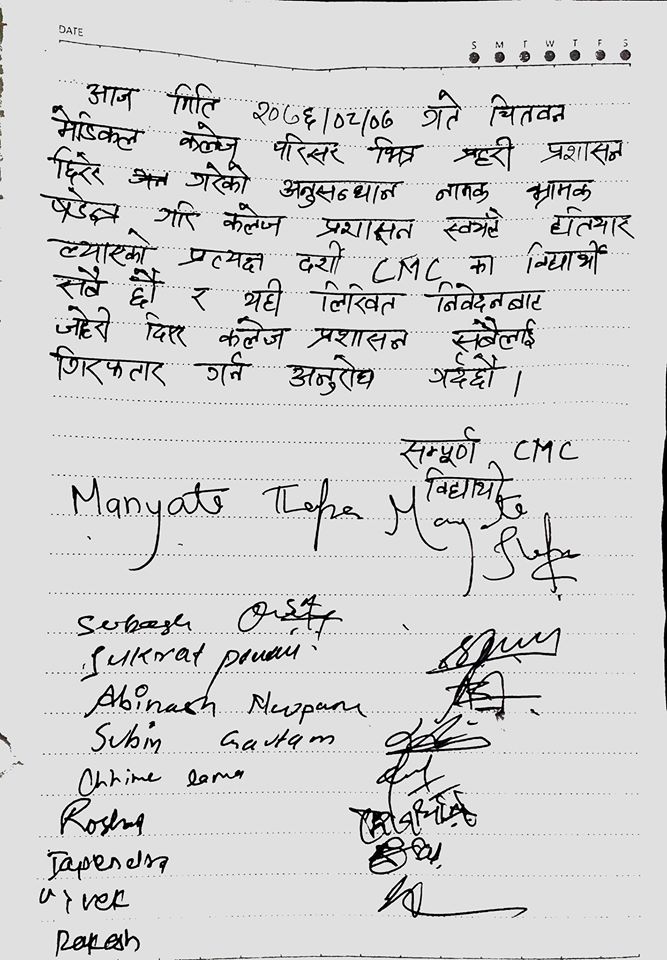 DATE
S M T W T F S
आज मिति २०७६/०८/०७ गते चितवन
मेडिकल कलेज परिसर भित्र प्रहरी प्रशासन
छिरेर गरेको अनुसन्धान नामक भ्रामक
गरि कलेज प्रशासन स्वयंले हतियार
ल्याएको प्रत्यक्ष दर्शी CMC का विद्यार्थी
सबै छौं र यही लिखित निवेदनबाट
जाहेरी दिएर कलेज प्रशासन सबैलाई
गिरफतार गर्न अनुरोध गर्दछौं ।
सम्पूर्ण CMC
विद्यार्थी
Manyata Thapa
Subash
Sukrat
Abinash Neupane
Subin Gautam
Chhime Lama
Roshan
Tapendra
Vivek
Rakesh